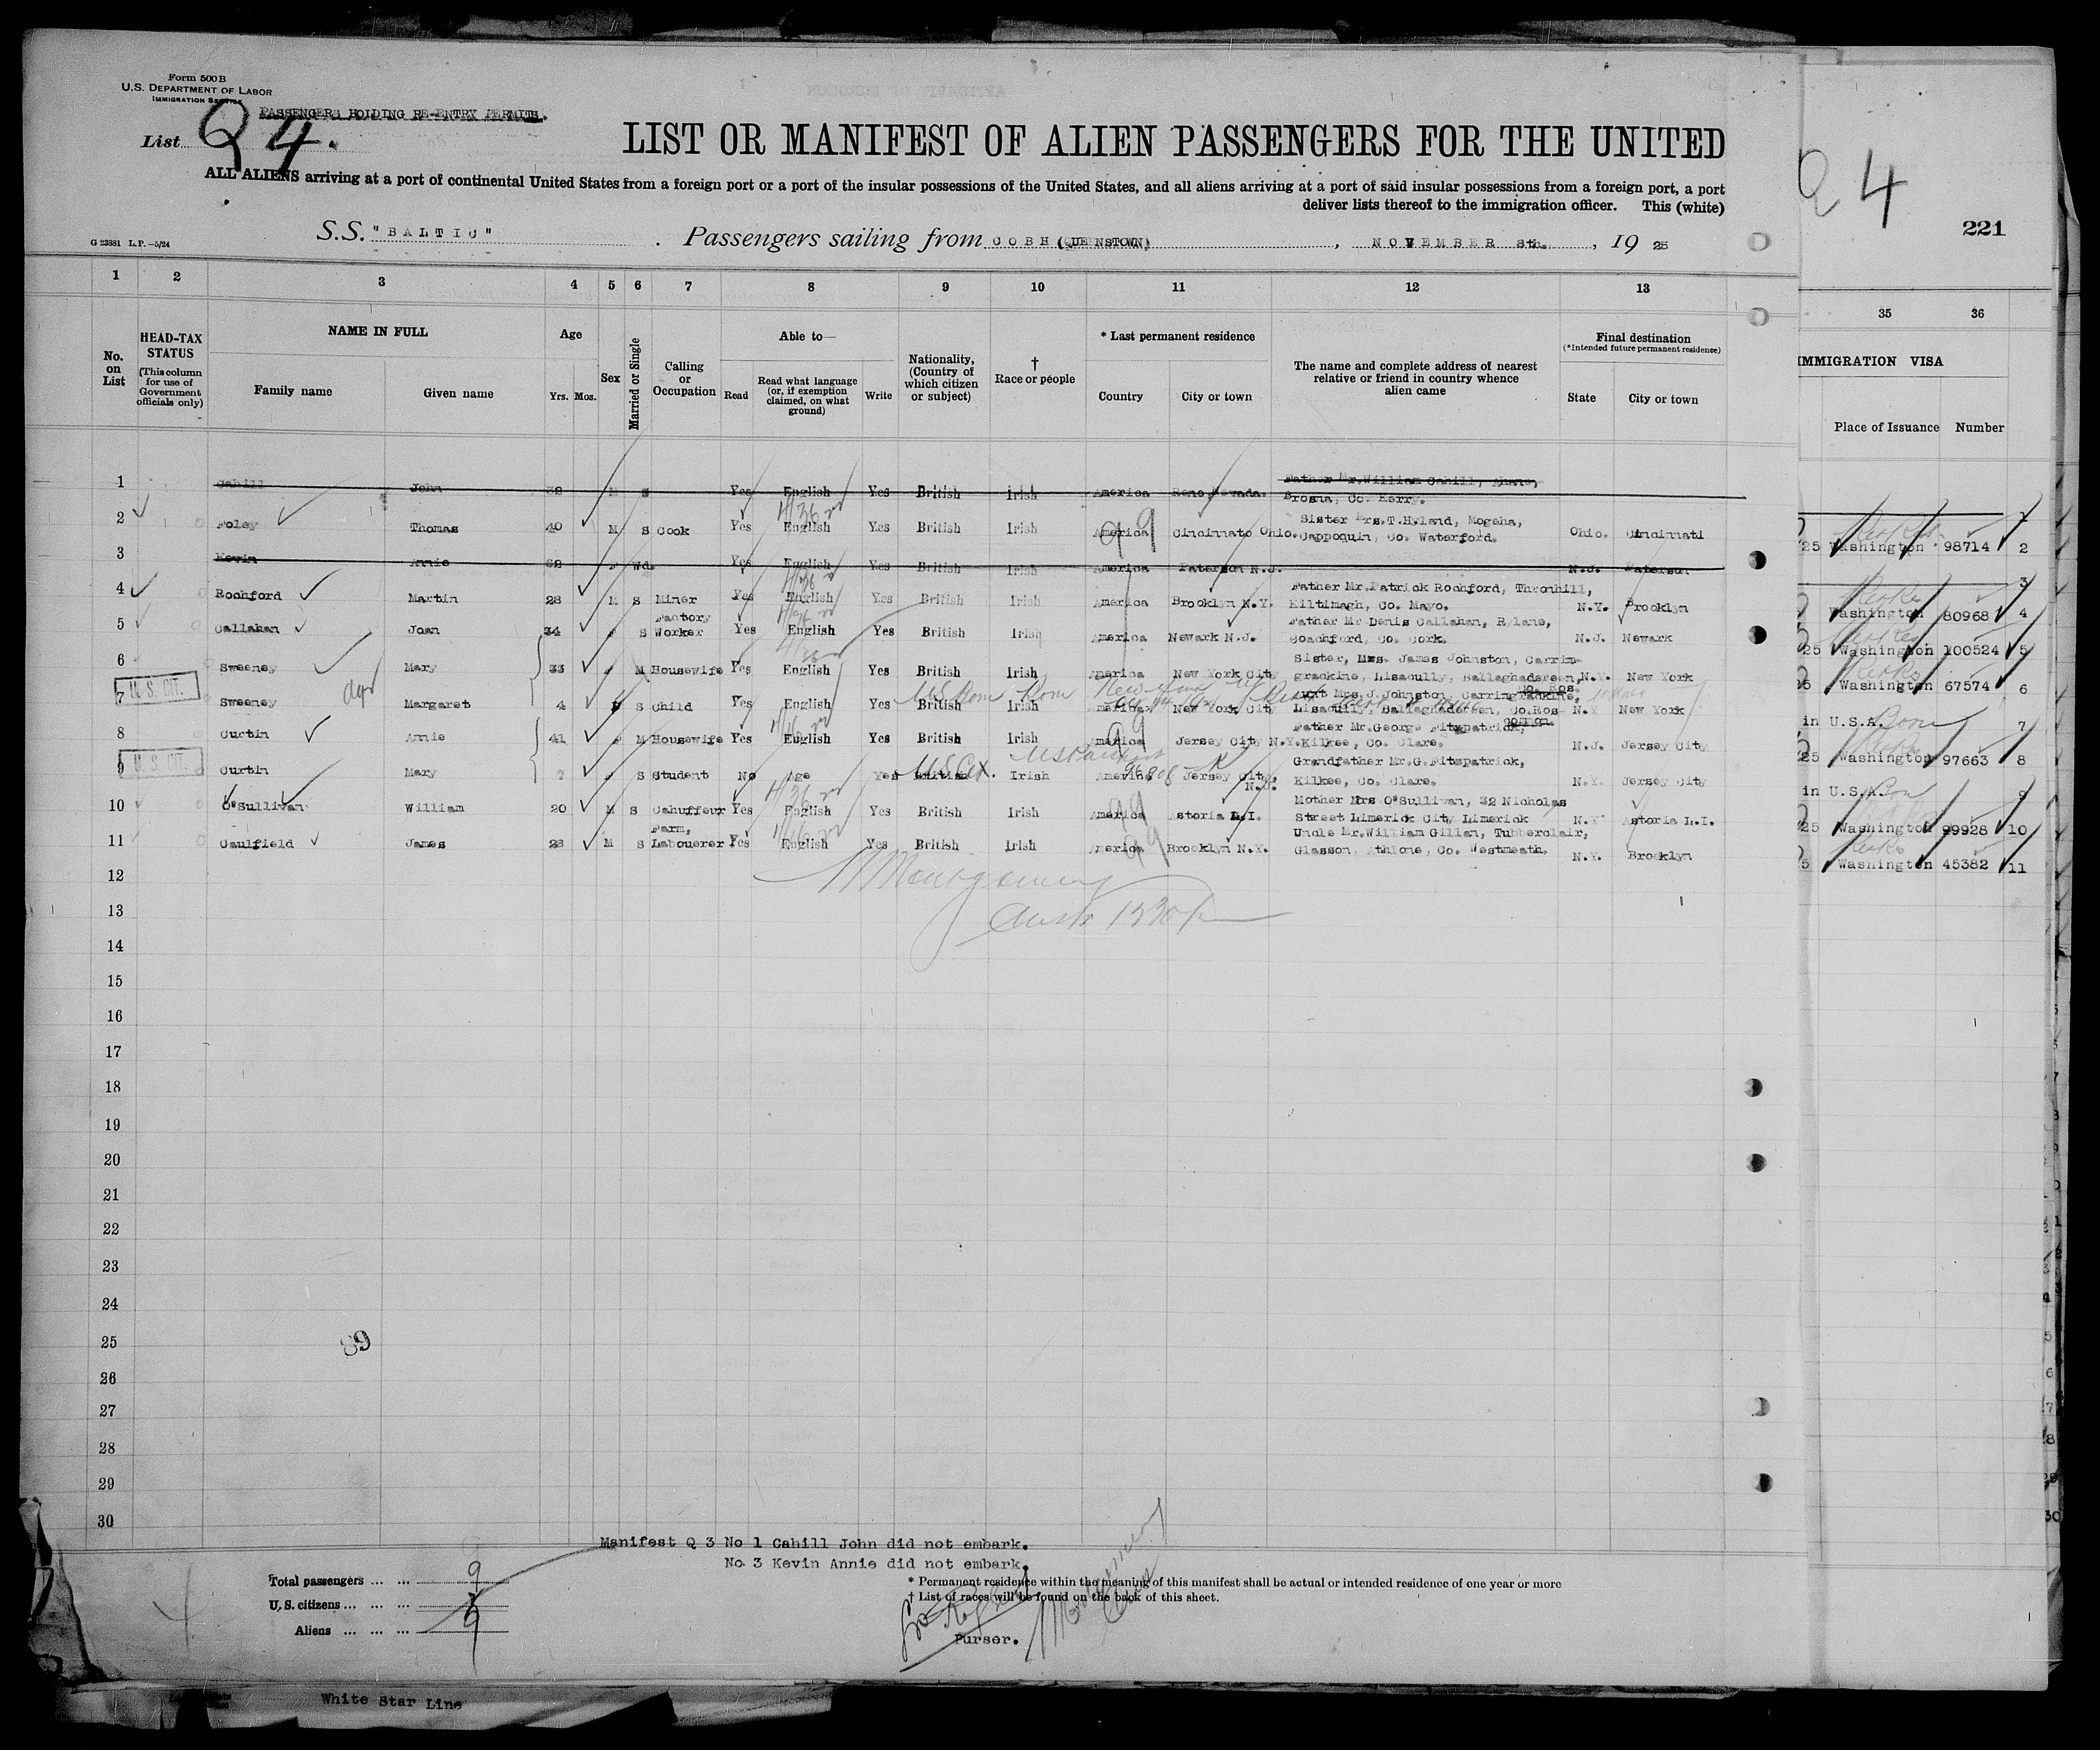 Form 500B
U.S. DEPARTMENT OF LABOR
IMMIGRATION SERVICE
PASSENGERS HOLDING RE-ENTRY PERMITS.
List Q 4.
LIST OR MANIFEST OF ALIEN PASSENGERS FOR THE UNITED
ALL ALIENS arriving at a port of continental United States from a foreign port or a port of the insular possessions of the United States, and all aliens arriving at a port of said insular possessions from a foreign port, a port
deliver lists thereof to the immigration officer. This (white)
Q 4
221
G 23881 L.P.—5/24
S.S. "BALTIC" . Passengers sailing from COBH (QUEENSTOWN) , NOVEMBER 8th. , 19 25
1 2 3 4 5 6 7 8 9 10 11 12 13 35 36
No. on List
HEAD-TAX STATUS (This column for use of Government officials only)
NAME IN FULL
Family name Given name
Age
Yrs. Mos.
Sex
Married or Single
Calling or Occupation
Able to—
Read
Read what language (or, if exemption claimed, on what ground)
Write
Nationality, (Country of which citizen or subject)
† Race or people
* Last permanent residence
Country City or town
The name and complete address of nearest relative or friend in country whence alien came
Final destination
(*Intended future permanent residence)
State City or town
IMMIGRATION VISA
Place of Issuance Number
1 Cahill John M S Yes English Yes British Irish America Reno, Nevada. Father Mr. William Cahill,
Brosna, Co. Kerry. 1
2 Foley Thomas 40 M S Cook Yes English Yes British Irish America Cincinnato Ohio. Sister Mrs.T.Hyland, Mogeha,
Cappoquin, Co. Waterford. Ohio. Cincinnati 25 Washington 98714 2
3 Kevin Annie F Wd. Yes English Yes British Irish America Paterson N.J. N.J. Paterson 3
4 Rochford Martin 28 M S Miner Yes English Yes British Irish America Brooklyn N.Y. Father Mr.Patrick Rochford, Thronhill,
Kiltimagh, Co. Mayo. N.Y. Brooklyn Washington 80968 4
5 Callahan Joan 34 F S Factory Worker Yes English Yes British Irish America Newark N.J. Father Mr Denis Callahan, Rylane,
Coachford, Co. Cork. N.J. Newark 25 Washington 100524 5
6 Sweeney Mary 33 F M Housewife Yes English Yes British Irish America New York City Sister, Mrs. James Johnston, Carrin-
grackine, Lisacully, Ballaghadereen, Co. Ros N.Y. New York 5 Washington 67574 6
U. S. CIT.
7 Sweeney Margaret 4 F S Child Yes English Yes British Irish America New York City Aunt Mrs.J.Johnston, Carringrackine,
Lisacully, Ballaghadereen, Co.Ros- common. N.Y New York in U.S.A. Born 7
8 Curtin Annie 41 F M Housewife Yes English Yes British Irish America Jersey City N.Y. Father Mr.George Fitzpatrick,
Kilkee, Co. Clare. N.J. Jersey City 25 Washington 97663 8
U. S. CIT.
9 Curtin Mary 7 F S Student No Age Yes British Irish America Jersey City, N.J. Grandfather Mr.G.Fitzpatrick,
Kilkee, Co. Clare. N.Y. Jersey City in U.S.A. 9
10 O'Sullivan William 20 M S Cahuffeur Yes English Yes British Irish America Astoria L.I. Mother Mrs O'Sullivan, 32 Nicholas
Street Limerick City Limerick N.Y Astoria L.I. 25 Washington 99928 10
11 Caulfield James 23 M S Farm, Labouerer Yes English Yes British Irish America Brooklyn N.Y. Uncle Mr.William Gillan, Tubberclair,
Glasson, Athlone, Co. Westmeath. N.Y. Brooklyn 5 Washington 45382 11
12
13
14
15
16
17
18
19
20
21
22
23
24
25
89
26
27
28
29
30
Manifest Q 3 No 1 Cahill John did not embark.
No. 3 Kevin Annie did not embark.
Total passengers ... ... 9
U. S. citizens ... ... ...
Aliens ... ... ...
* Permanent residence within the meaning of this manifest shall be actual or intended residence of one year or more
† List of races will be found on the back of this sheet.
Purser.
White Star Line